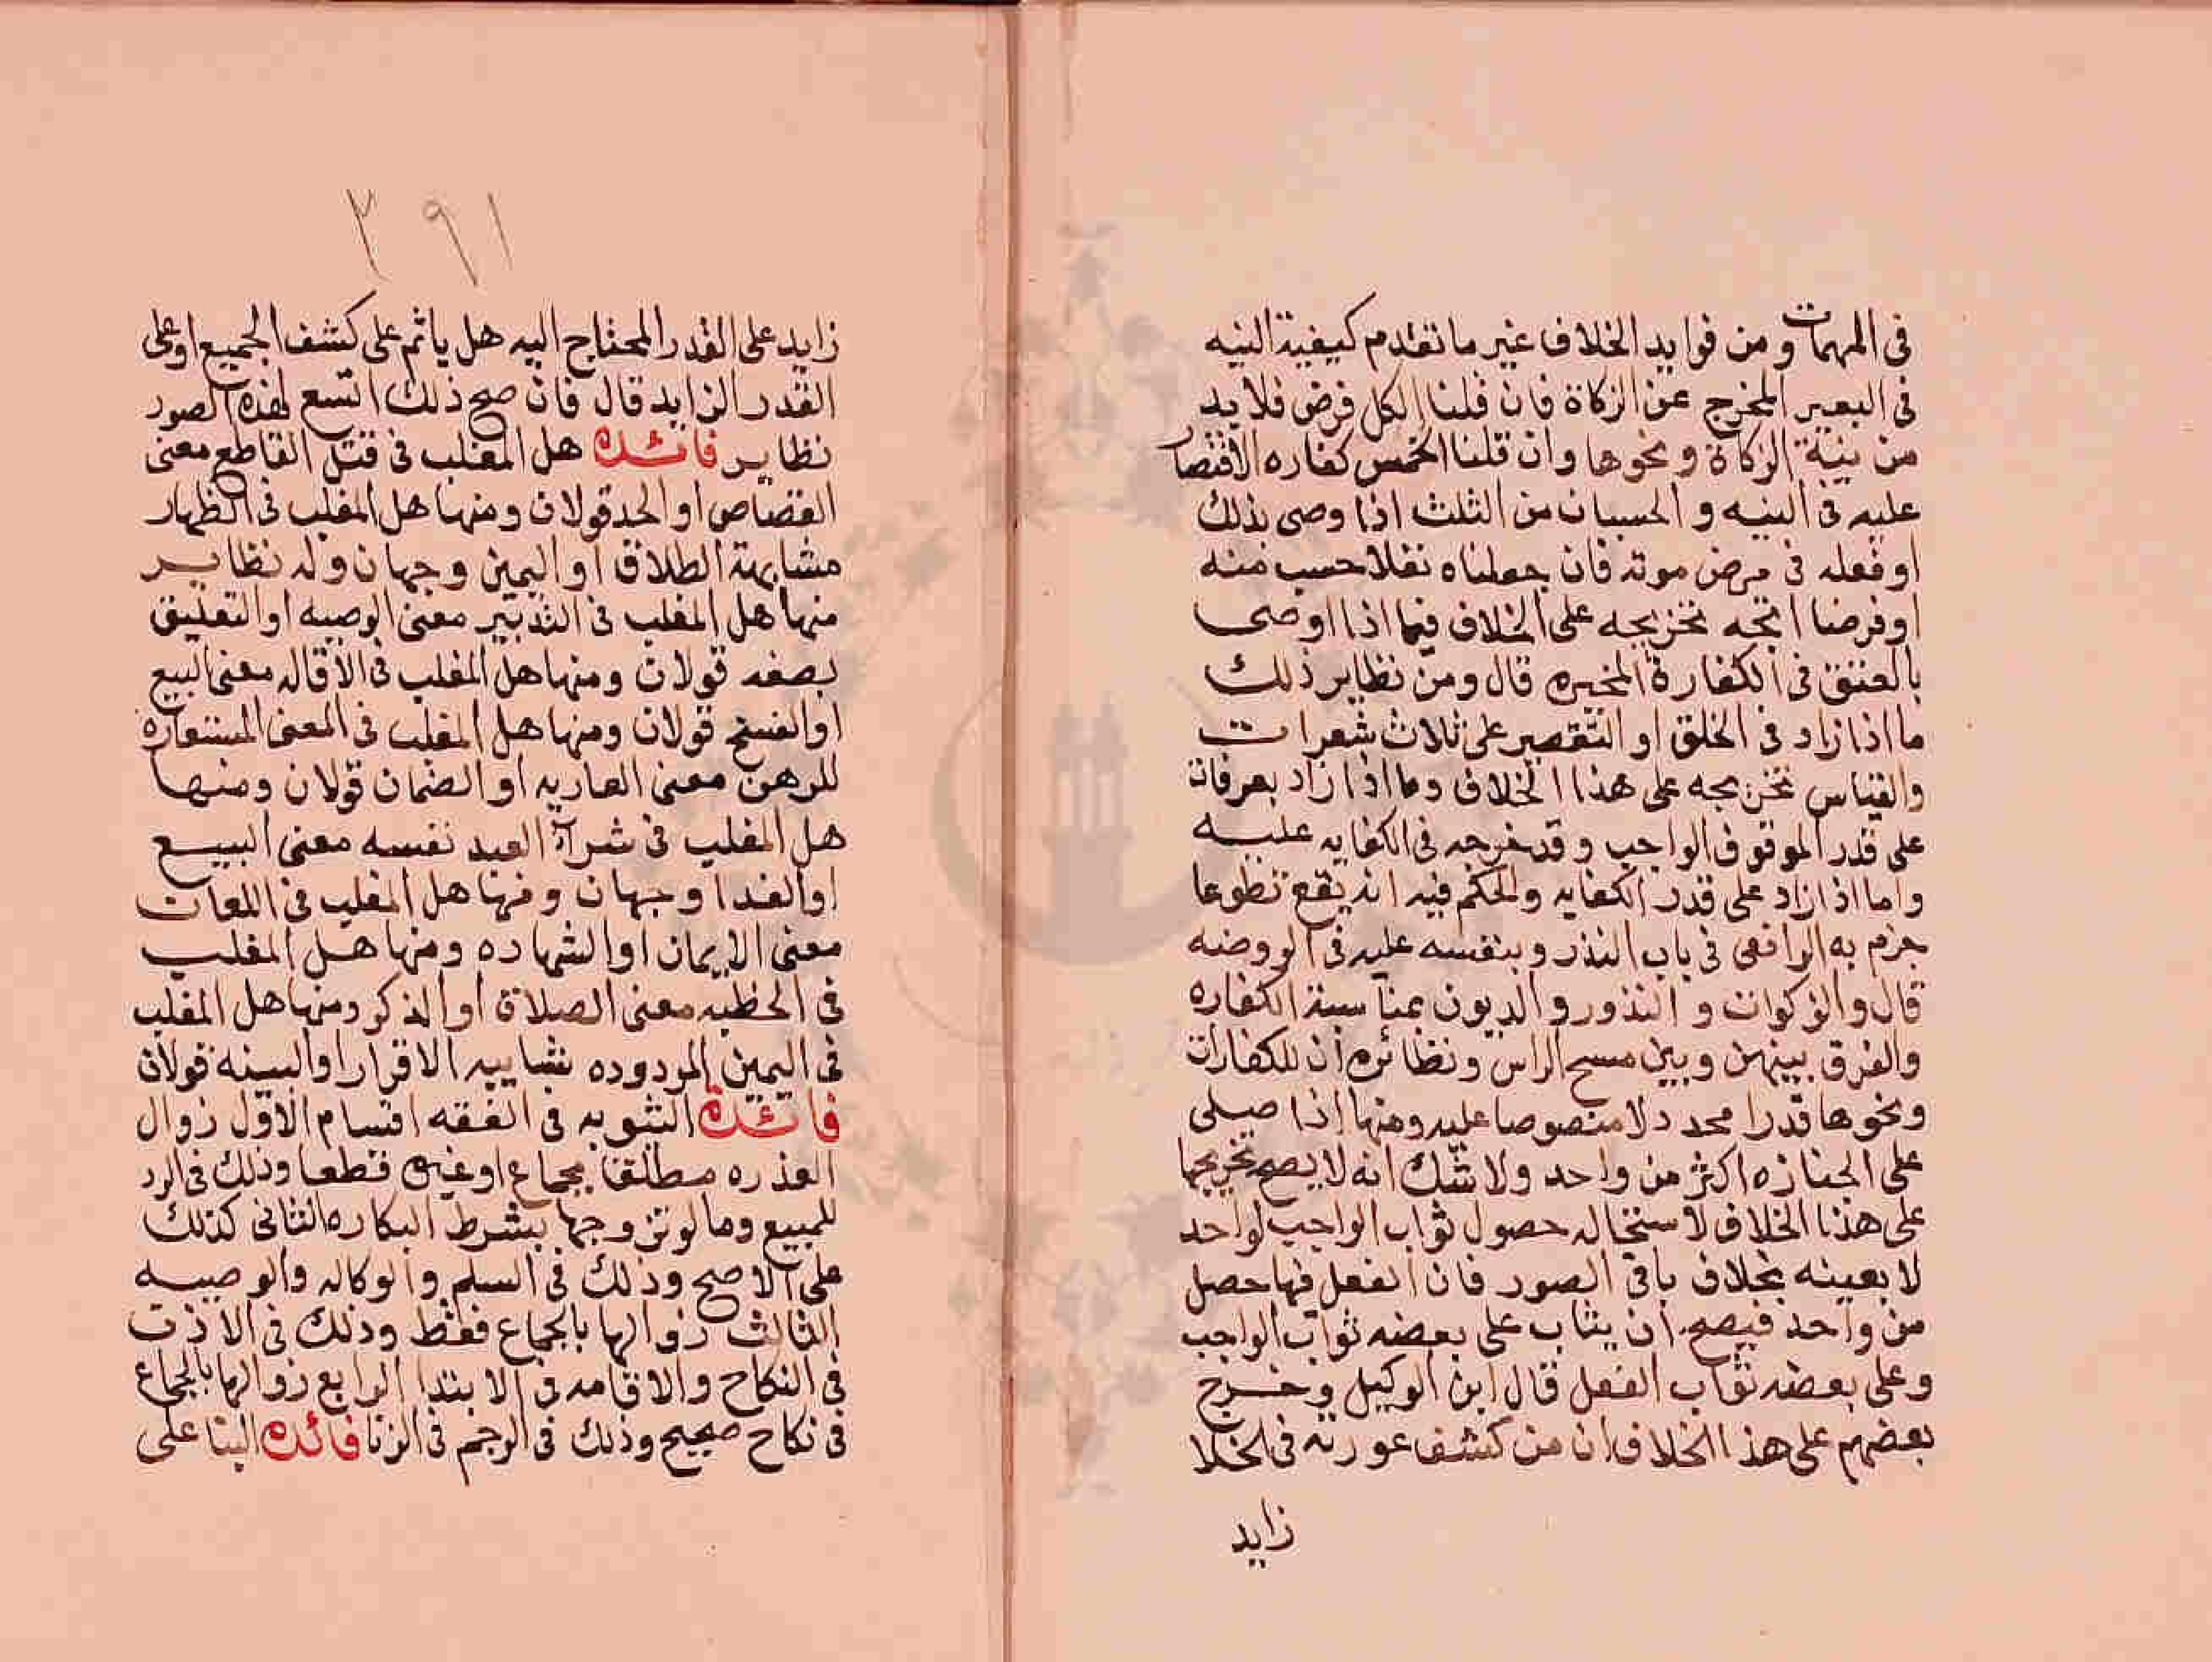 في المهمات ومن فوايد الخلاف غير ما تقدم كيفية النيه
في البعير المخرج عن الزكاة فان قلنا الكل فرض فلا بد
من بنية الزكاة ونحوها وان قلنا الخمس كفاره الاقتصار
عليه في النيه والحسبان من الثلث اذا وصى بذلك
او فعله في مرض موته فان جعلناه نفلا حسب منه
او فرضا اتجه تخريجه على الخلاف فيما اذا اوصى
بالعتق في الكفارة المخيره قال ومن نظاير ذلك
ما اذا زاد في الحلق او التقصير على ثلاث شعرات
والقياس تخريجه على هذا الخلاف وما اذا زاد بعرفات
على قدر الموقوف الواجب وقد خرجه في الكفايه عليه
واما اذا زاد على قدر الكفايه والحكم فيه انه يقع تطوعا
جزم به الرافعي في باب النذر وبنفسه عليه في الروضه
قال والزكوات والنذور والديون بمناسبة الكفاره
والفرق بينهن وبين مسح الراس ونظائره ان للكفارات
ونحوها قدرا محددلا منصوصا عليه ومنها اذا صلى
على الجنازه اكثر من واحد ولا شك انه لا يصح تخريجها
على هذا الخلاف لاستحاله حصول ثواب الواجب لواحد
لا بعينه بخلاف باقي الصور فان الفعل فيها حصل
من واحد فيصح ان يثاب على بعضه ثواب الواجب
وعلى بعضه ثواب الفعل قال ابن الوكيل وخرج
بعضهم على هذا الخلاف ان من كشف عورته في الخلا
زايد
٣٩١
زايد على القدر المحتاج اليه هل ياثم على كشف الجميع او على
القدر الزايد قال فان صح ذلك اتسع لهذه الصور
نظاير فائده هل المغلب في قتل القاطع معنى
القصاص او الحد قولان ومنها هل المغلب في الظهار
مشابهة الطلاق او اليمين وجهان وله نظاير
منها هل المغلب في التدبير معنى الوصيه او التعليق
بصفه قولان ومنها هل المغلب في الاقاله معنى البيع
او الفسخ قولان ومنها هل المغلب في المعنى المستعارة
للرهن معنى العاريه او الضمان قولان ومنها
هل المغلب في شرآ العبد نفسه معنى البيع
او الفدا وجهان ومنها هل المغلب في اللعات
معنى الايمان او الشهاده ومنها هل المغلب
في الخطبه معنى الصلاة او الذكر ومنها هل المغلب
في اليمين المردوده شايبه الاقرار او البينه قولان
فائدة الثيوبه في الفقه اقسام الاول زوال
العذره مطلقا بجماع او غيره قطعا وذلك في الرد
للمبيع وما لو تزوجها بشرط البكاره الثاني كذلك
على الاصح وذلك في السلم والوكاله والوصيه
الثالث زوالها بالجماع فقط وذلك في الاذن
في النكاح والاقامه في الابتدا الرابع زوالها بالجماع
في نكاح صحيح وذلك في الرجم في الزنا فائده البنا على